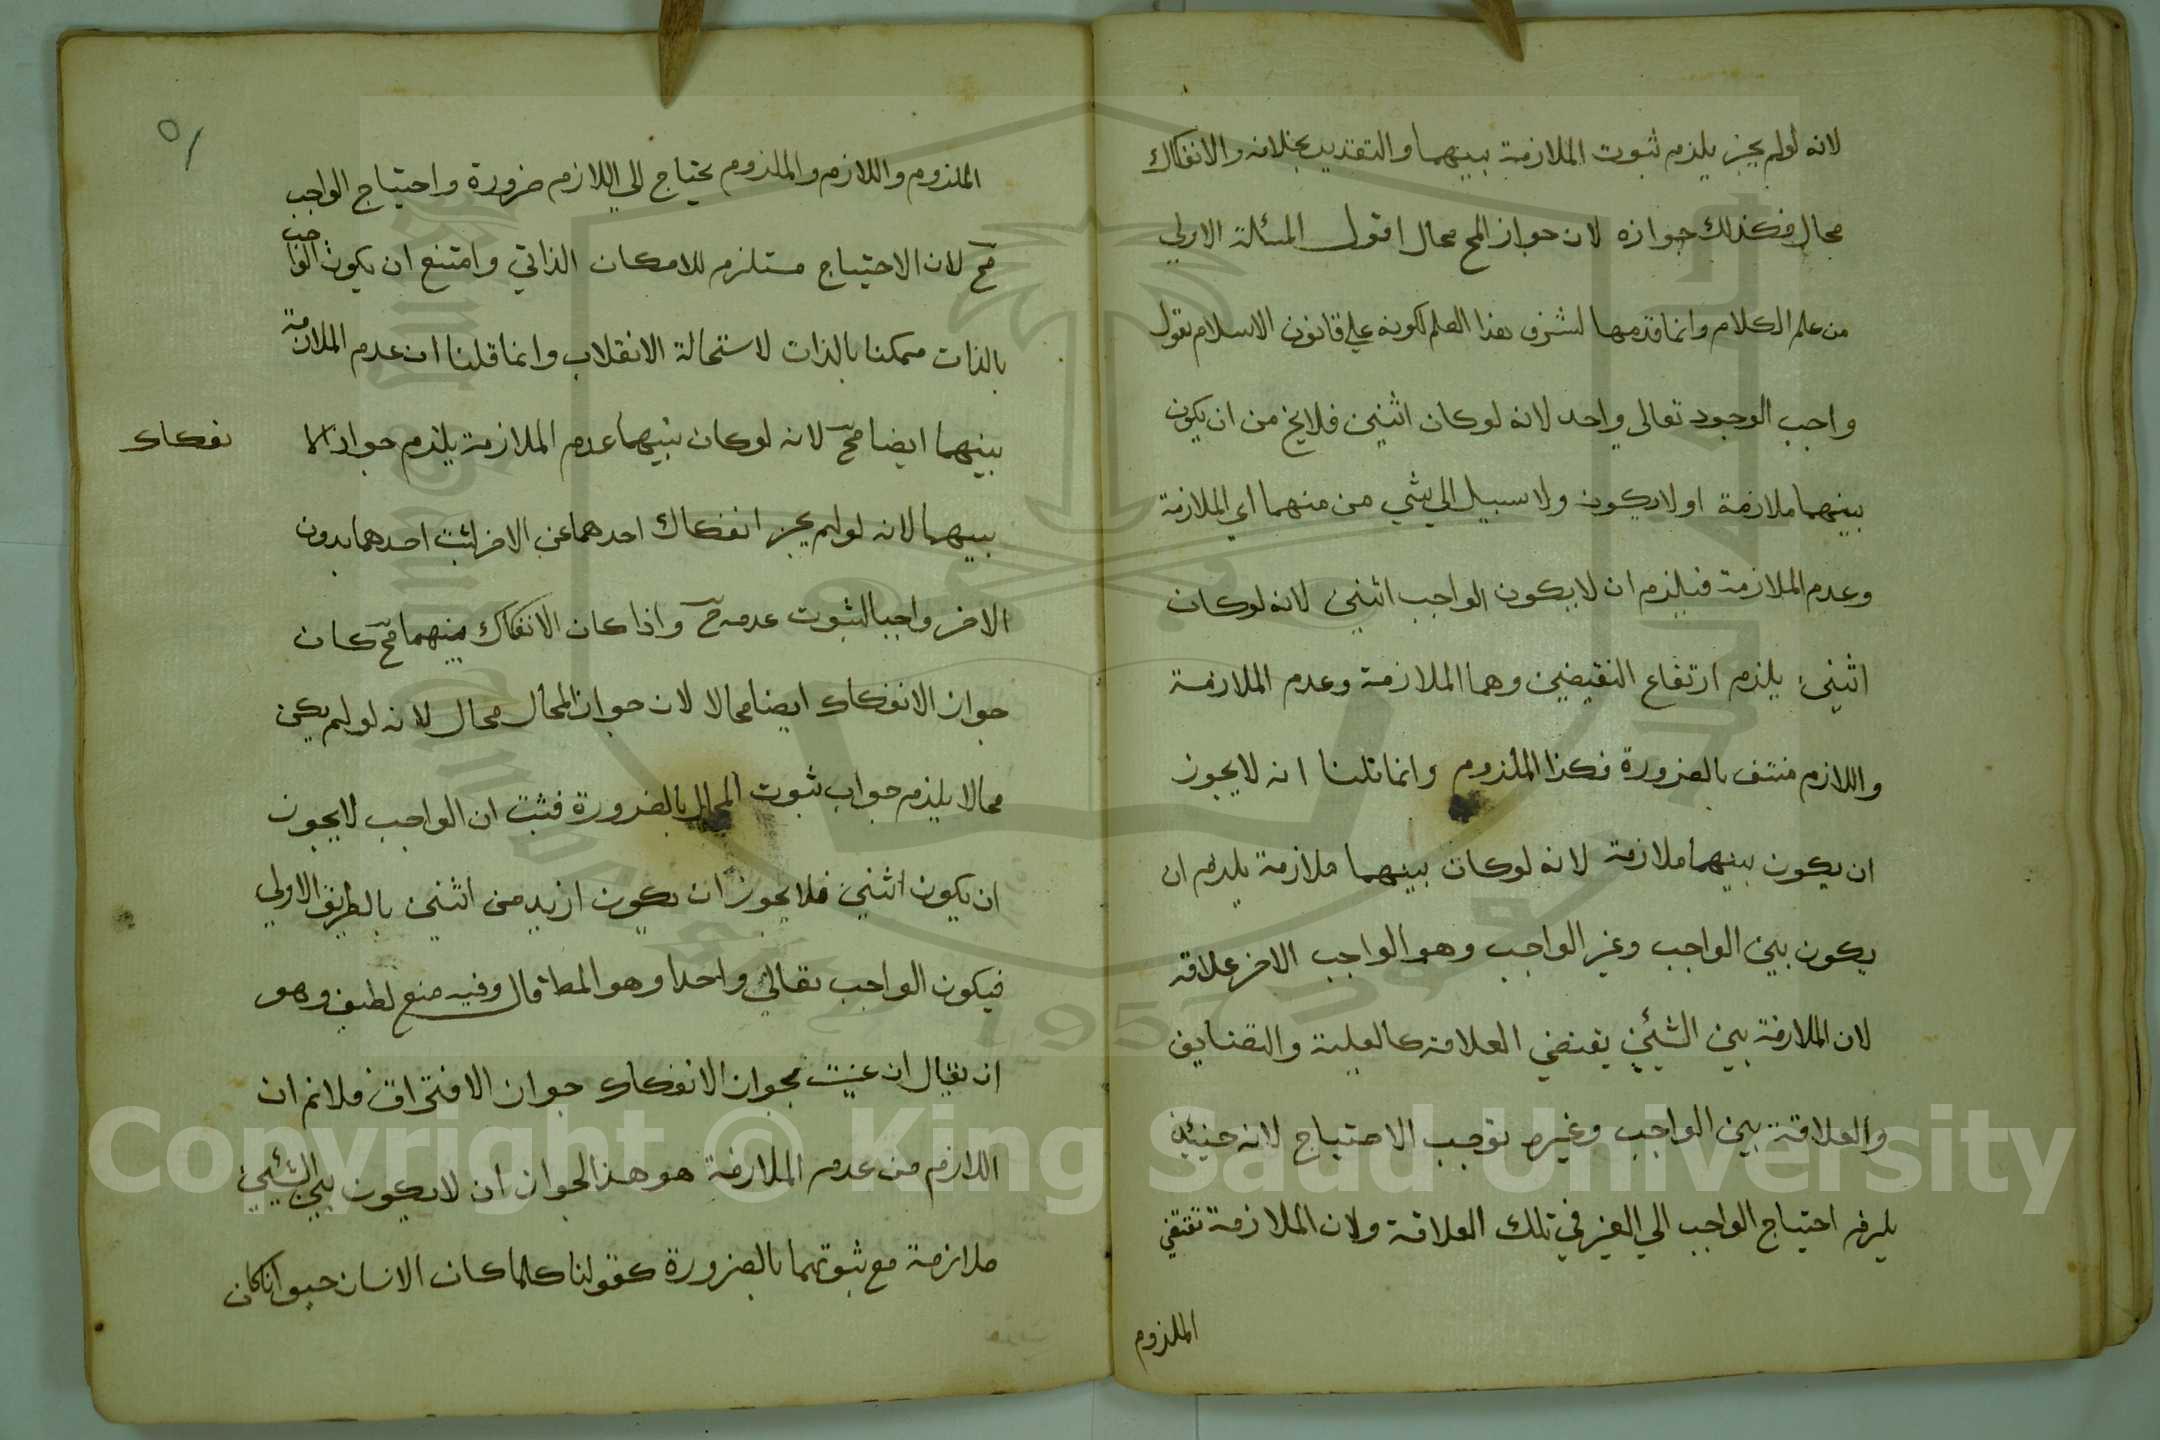 لانه لو لم يجز يلزم ثبوت الملازمة بينهما والتقدير بخلافه والانفكاك
محال فكذلك جوازه لان جواز المح محال اقول المسئلة الاولي
من علم الكلام وانما قدمها لشرف هذا العلم لكونه علي قانون الاسلام نقول
واجب الوجود تعالى واحد لانه لو كان اثنين فلا يخ من ان يكون
بينهما ملازمة او لا يكون ولا سبيل الي شي من منهما اي الملازمة
وعدم الملازمة فيلزم ان لا يكون الواجب اثنين لانه لو كان
اثنين يلزم ارتفاع النقيضين وهما الملازمة وعدم الملازمة
واللازم منتف بالضرورة فكذا الملزوم وانما قلنا انه لا يجوز
ان يكون بينهما ملازمة لانه لو كان بينهما ملازمة يلزم ان
يكون بين الواجب وغير الواجب وهو الواجب الاخر علاقة
لان الملازمة بين الشيئين يقتضي العلاقة كالعلية والتضايف
والعلاقة بين الواجب وغيره توجب الاحتياج لانه حينئذ
يلزم احتياج الواجب الي الغير في تلك العلاقة ولان الملازمة تقتضي
الملزوم
٥١
الملزوم واللازم والملزوم يحتاج الي اللازم ضرورة واحتياج الواجب
مح لان الاحتياج مستلزم للامكان الذاتي وامتنع ان يكون الواجب
بالذات ممكنا بالذات لاستحالة الانقلاب وانما قلنا ان عدم الملازمة
بينهما ايضا مح لانه لو كان بينهما عدم الملازمة يلزم جواز الا
نفكاك
بينهما لانه لو لم يجز انفكاك احدهما عن الاخر لثبت احدهما بدون
الاخر واجبا لثبوت عدمه ح واذا كان الانفكاك بينهما مح كان
جواز الانفكاك ايضا محالا لان جواز المحال محال لانه لو لم يكن
محالا يلزم جواب ثبوت المحال بالضرورة فثبت ان الواجب لا يجوز
ان يكون اثنين فلا يجوز ان يكون ازيد من اثنين بالطريق الاولي
فيكون الواجب تعالي واحدا وهو المط قال وفيه منع لطيف وهو
ان يقال ان عنيت بجواز الانفكاك جواز الافتراق فلانم ان
اللازم من عدم الملازمة هو هذا الجواز ان لا يكون بين الشيئين
ملازمة مع ثبوتهما بالضرورة كقولنا كلما كان الانسان حيوانا كان
Copyright © King Saud University
1957